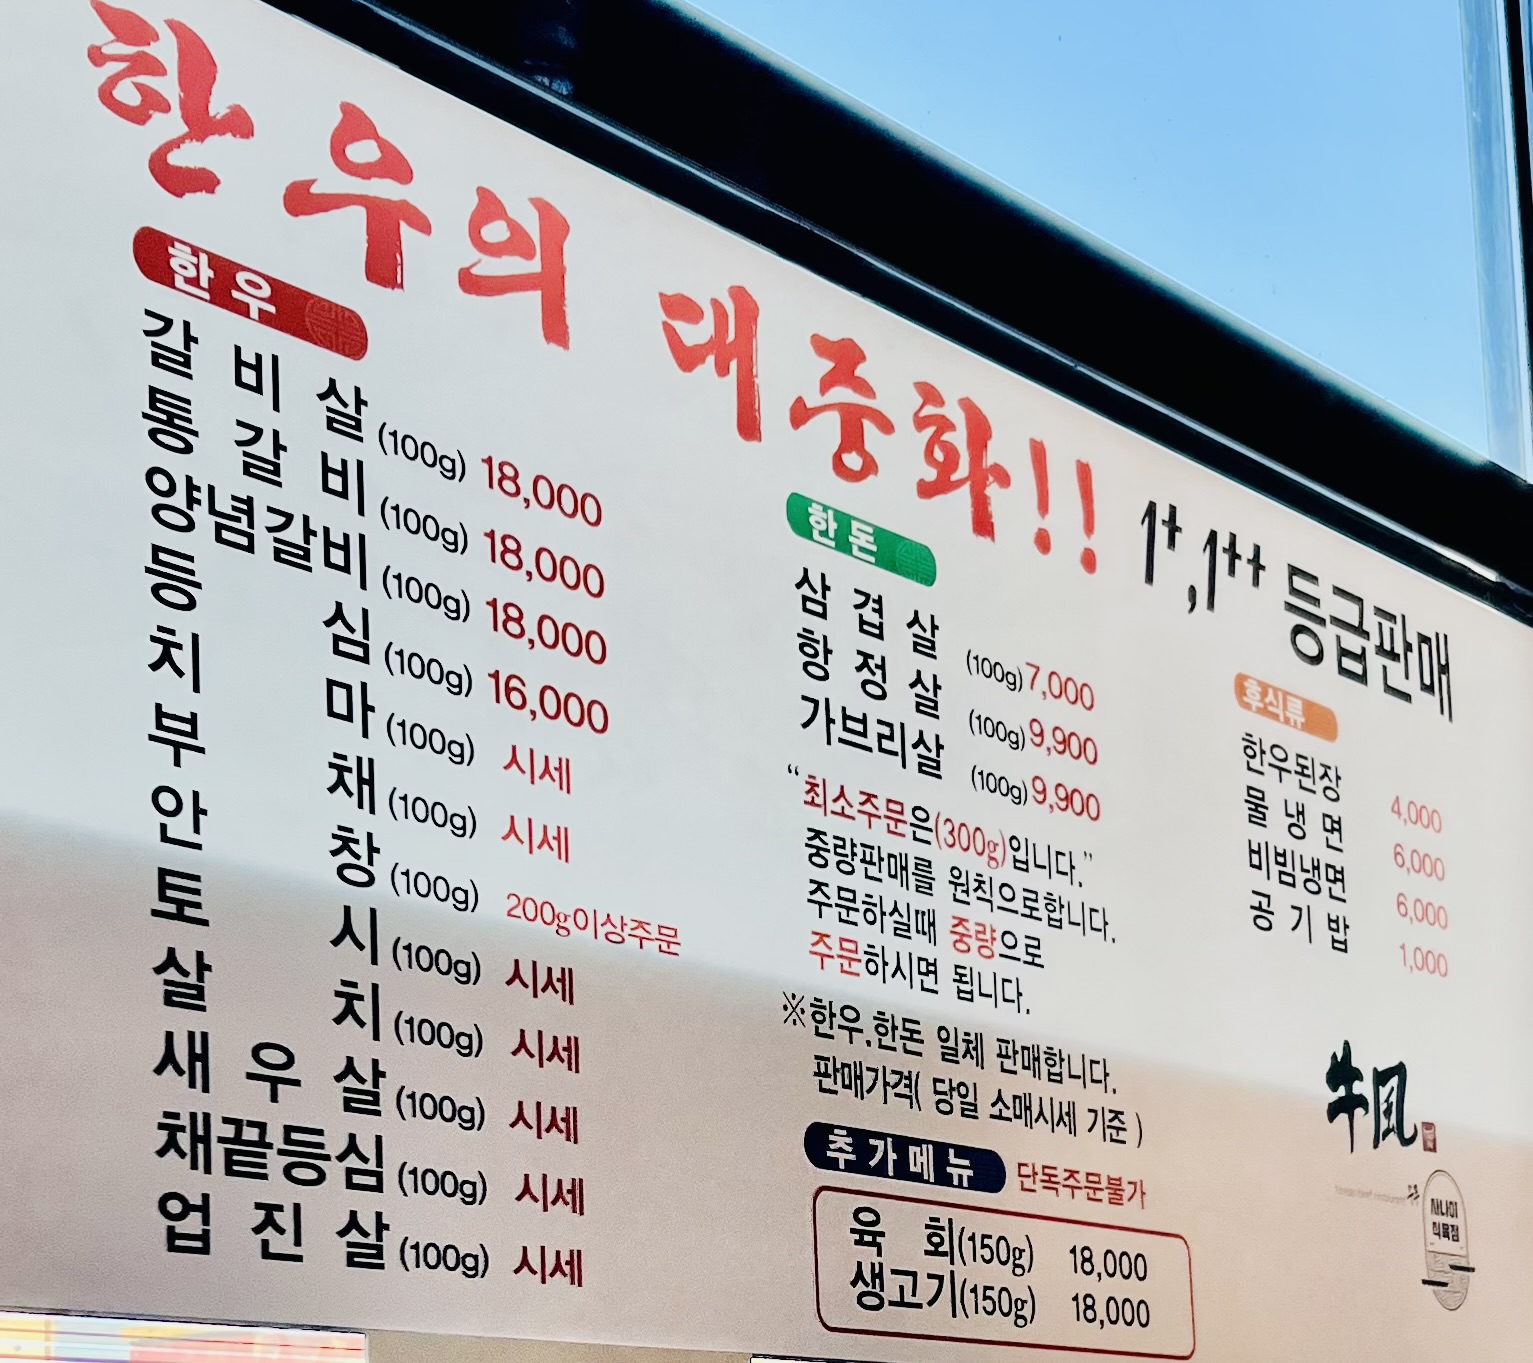 한우의 대중화!! 1+,1++ 등급판매
한우
갈비살 (100g) 18,000
통갈비 (100g) 18,000
양념갈비 (100g) 18,000
등심 (100g) 16,000
치마 (100g) 시세
부채 (100g) 시세
안창 (100g) 200g이상주문
토시 (100g) 시세
살치 (100g) 시세
새우살 (100g) 시세
채끝등심 (100g) 시세
업진살 (100g) 시세
한돈
삼겹살 (100g) 7,000
항정살 (100g) 9,900
가브리살 (100g) 9,900
“최소주문은(300g)입니다.”
중량판매를 원칙으로합니다.
주문하실때 중량으로
주문하시면 됩니다.
※한우.한돈 일체 판매합니다.
판매가격( 당일 소매시세 기준 )
추가메뉴 단독주문불가
육회(150g) 18,000
생고기(150g) 18,000
후식류
한우된장 4,000
물냉면 6,000
비빔냉면 6,000
공기밥 1,000
牛風
사나이
식육점